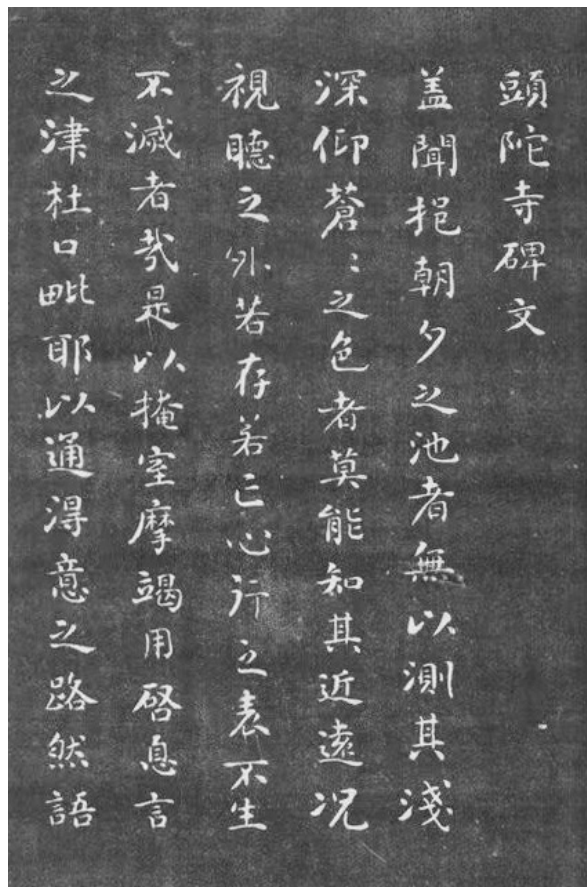 頭陀寺碑文
盖聞挹朝夕之池者無以測其淺
深仰蒼〻之色者莫能知其近遠况
視聽之外若存若亡心行之表不生
不滅者哉是以掩室摩竭用啓息言
之津杜口毗耶以通得意之路然語